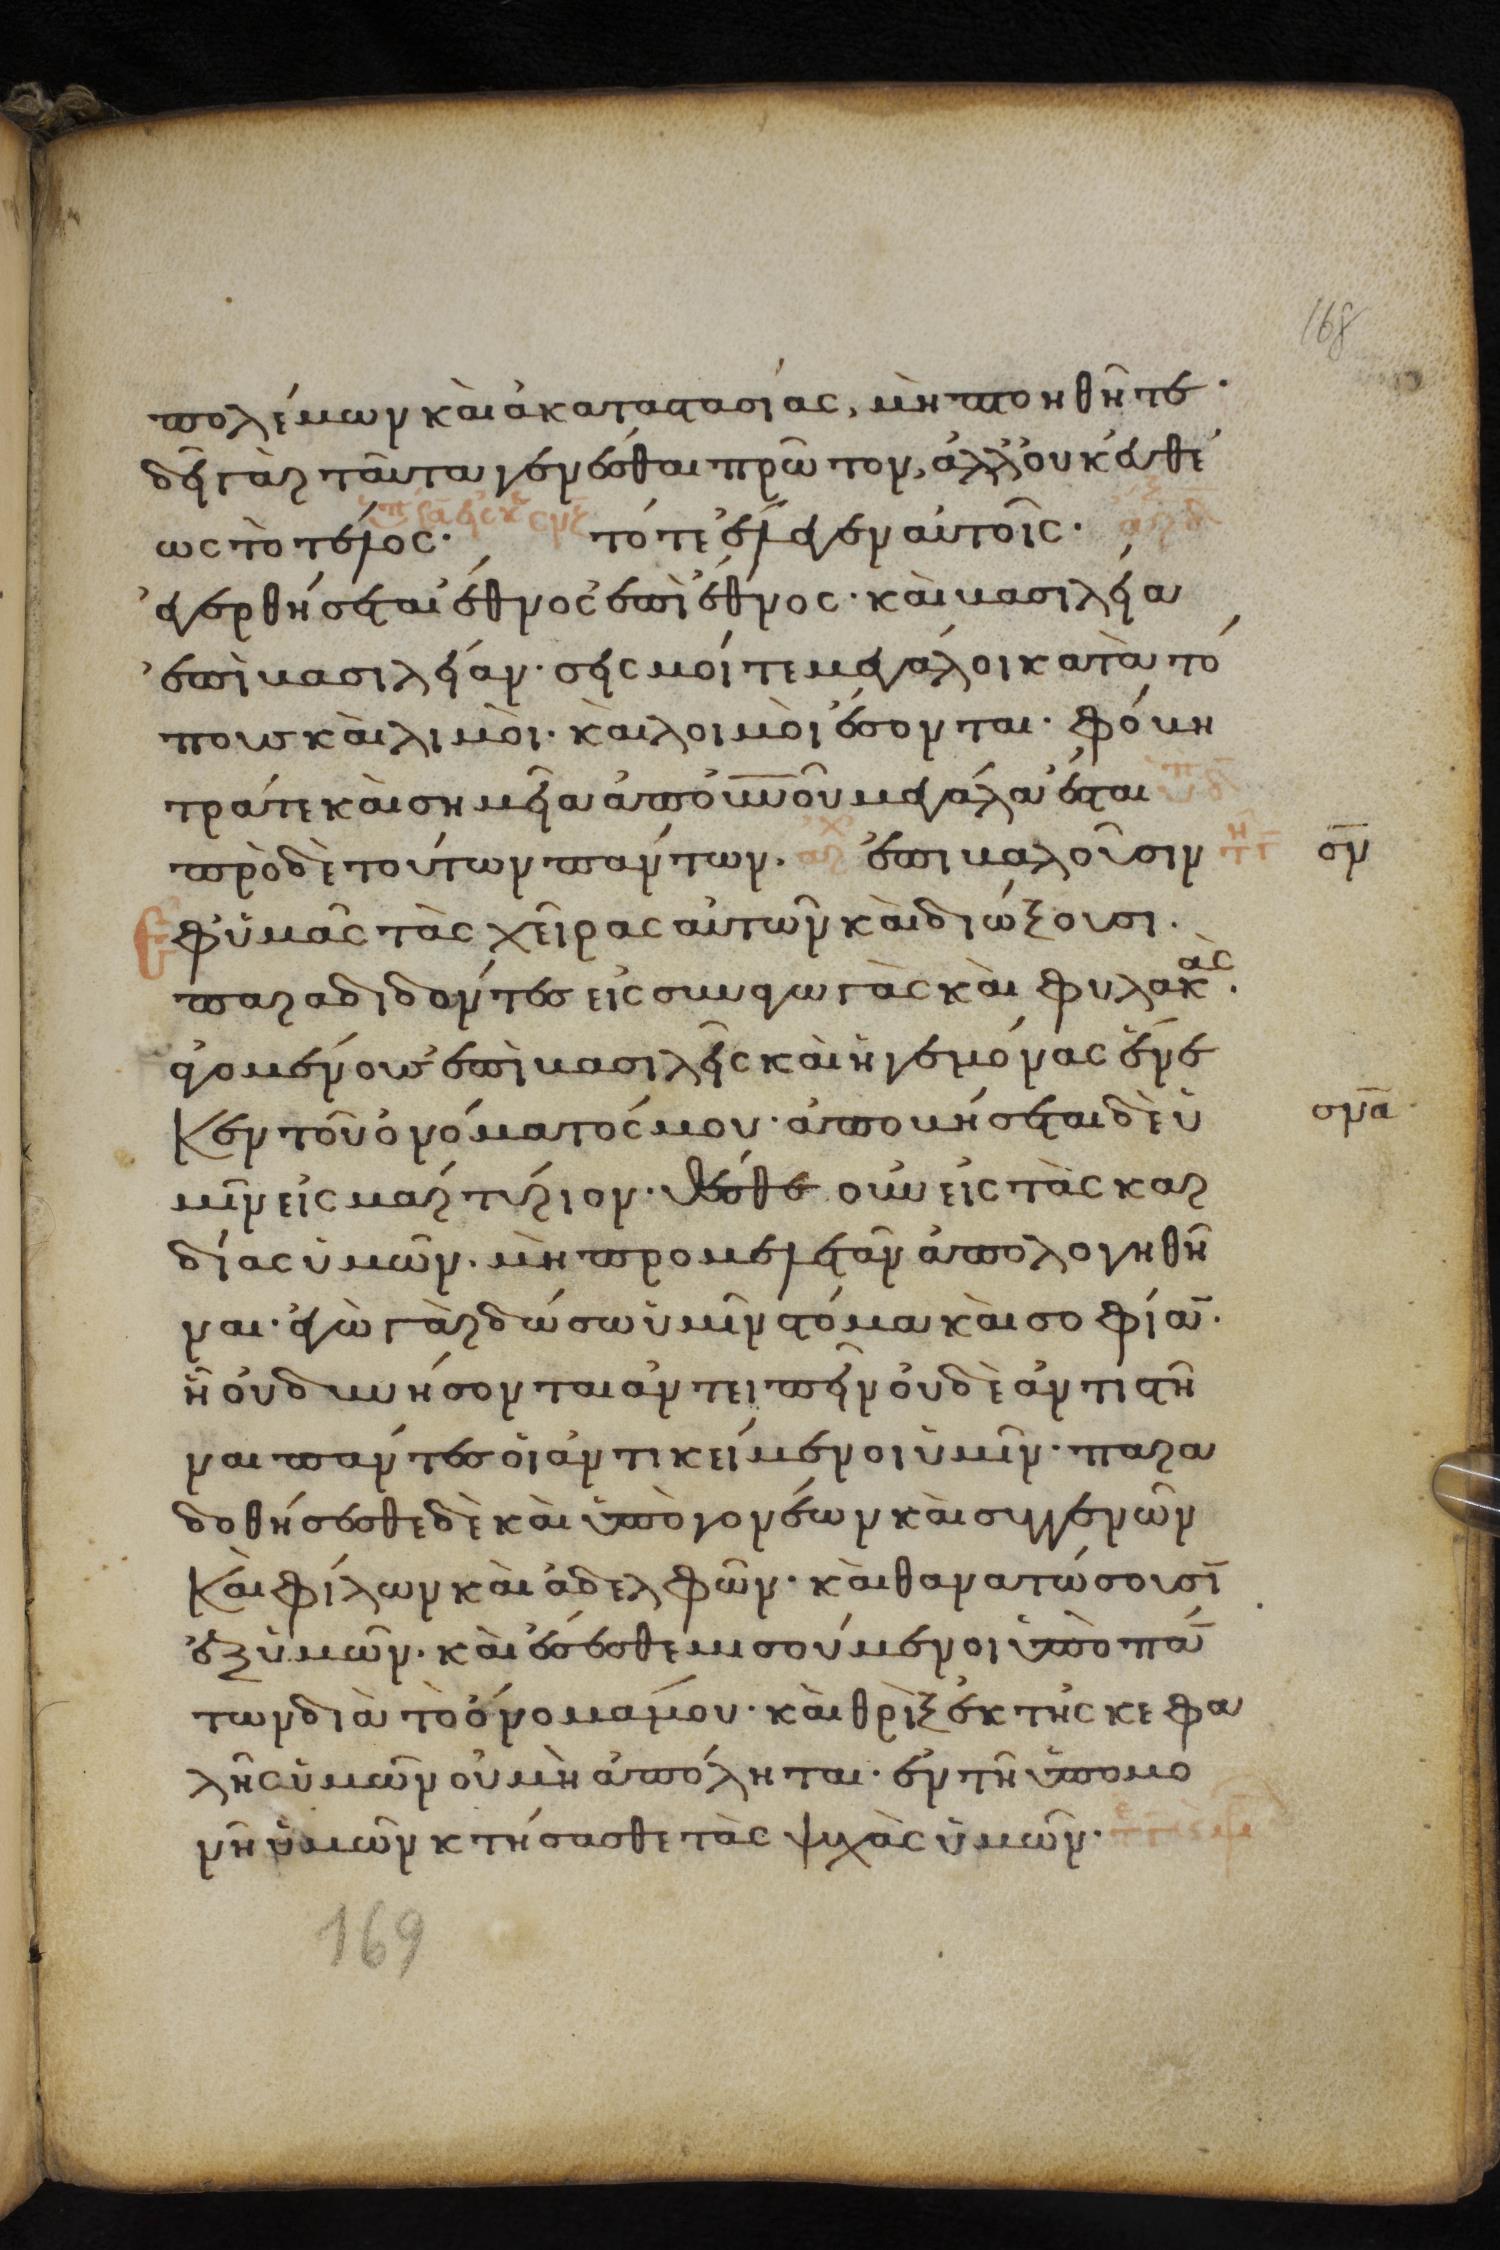 168
πολέμων καὶ ἀκαταστασίας, μὴ πτοηθῆτε·
δεῖ γὰρ ταῦτα γενέσθαι πρῶτον, ἀλλ' οὐκ εὐθέ
ως τὸ τέλος· τότε ἔλεγεν αὐτοῖς·
ἐγερθήσεται ἔθνος ἐπὶ ἔθνος· καὶ βασιλεία
ἐπὶ βασιλείαν· σεισμοί τε μεγάλοι κατὰ τό
πους καὶ λιμοὶ· καὶ λοιμοὶ ἔσονται· φόβη
τρά τε καὶ σημεῖα ἀπὸ οὐνοῦ μεγάλα ἔσται
πρὸ δὲ τούτων πάντων. ἐπιβαλοῦσιν σν
ἐφ' ὑμᾶς τὰς χεῖρας αὐτῶν καὶ διώξουσι.
παραδιδόντες εἰς συναγωγὰς καὶ φυλακὰς.
ἀγομένους ἐπὶ βασιλεῖς καὶ ἡγεμόνας ἕνε
κεν τοῦ ὀνόματός μου· ἀποβήσεται δὲ ὑ σνα
μῖν εἰς μαρτύριον· θέσθε οὖν εἰς τὰς καρ
δίας ὑμῶν. μὴ προμελετᾶν ἀπολογηθῆ
ναι· ἐγὼ γὰρ δώσω ὑμῖν στόμα καὶ σοφίαν̄·
ᾗ οὐ δυνήσονται ἀντειπεῖν οὐδὲ ἀντιστῆ
ναι πάντες οἱ ἀντικείμενοι ὑμῖν· παρα
δοθήσεσθε δὲ καὶ ὑπὸ γονέων καὶ συγγενῶν
καὶ φίλων καὶ ἀδελφῶν· καὶ θανατώσουσῑ
ἐξ ὑμῶν. καὶ ἔσεσθε μισούμενοι ὑπὸ πά̄
των διὰ τὸ ὄνομά μου· καὶ θρὶξ ἐκ τῆς κεφα
λῆς ὑμῶν οὐ μὴ ἀπόληται· ἐν τῇ ὑπομο
νῇ ὑμῶν κτήσασθε τὰς ψυχὰς ὑμῶν·
169